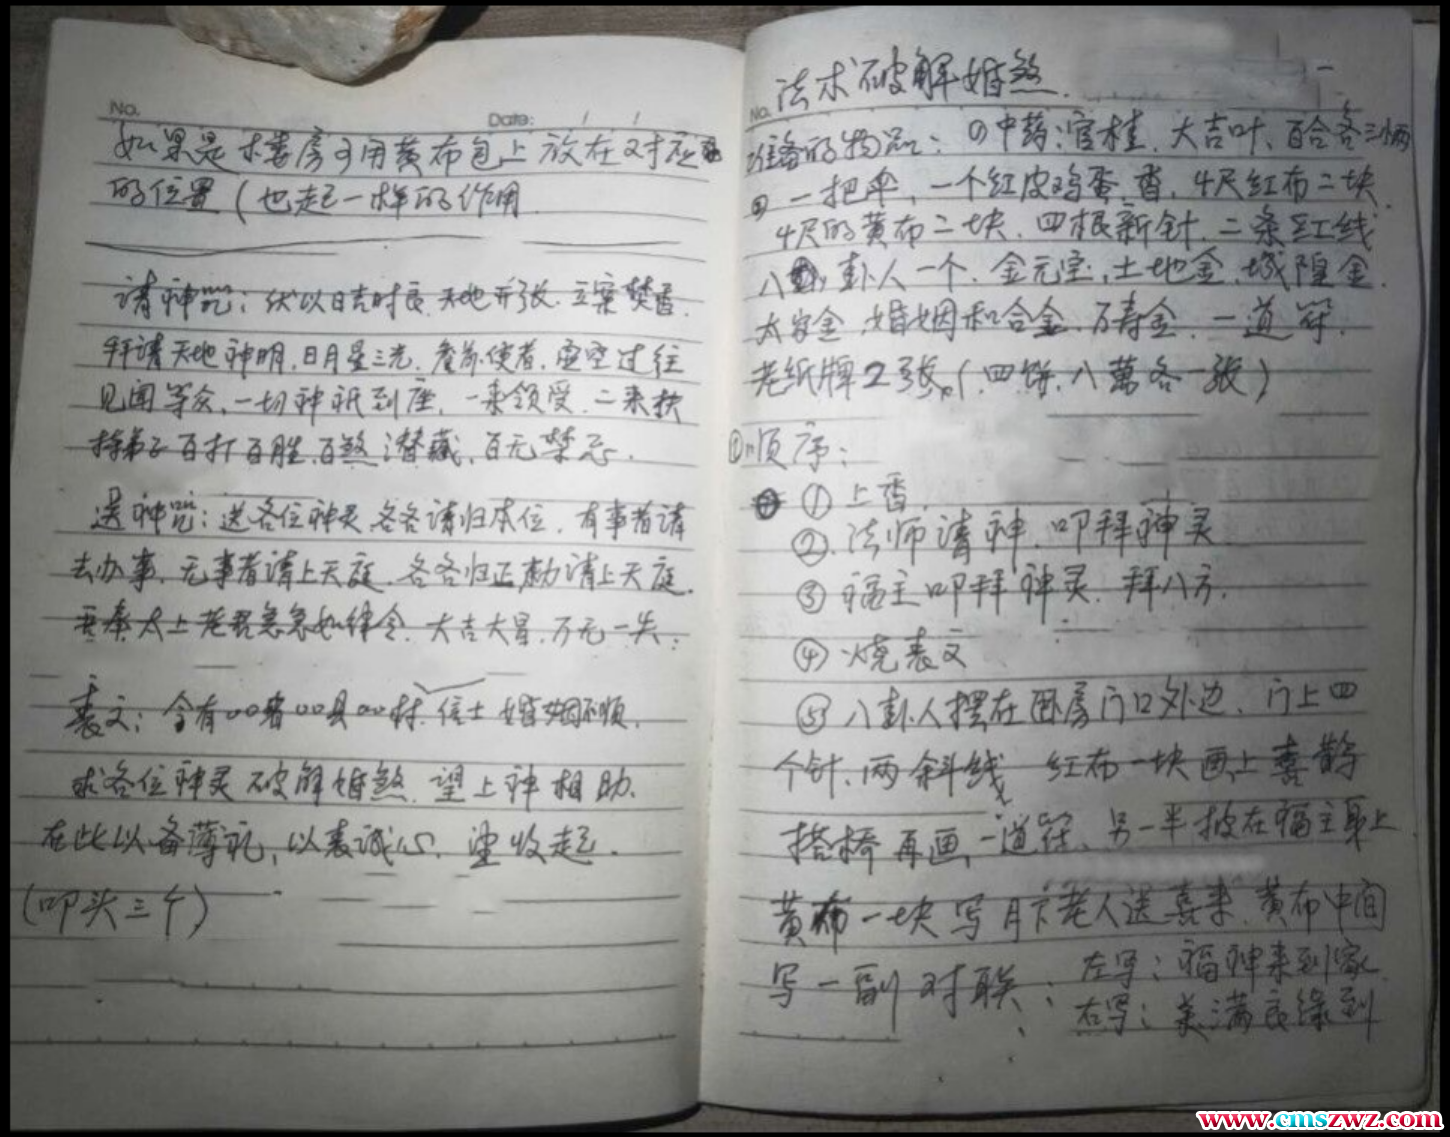 No.
Date: / /
如果是楼房可用黄布包上放在对应
的位置(也起一样的作用
请神咒：伏以日吉时良.天地开张.立案焚香.
拜请天地神明.日月星三光.虚空过往
见闻等众.一切神祇到座.一来领受.二来扶
持弟子百打百胜.百煞潜藏.百无禁忌.
送神咒：送各位神灵.各各请归本位.有事者请
去办事.无事者请上天庭.各各归正请上天庭.
吾奉太上老君急急如律令.大吉大昌.万无一失.
表文：今有○○省○○县○○村.信士婚姻不顺.
求各位神灵破解婚煞.望上神相助.
在此以备薄礼,以表诚心.望收起.
(叩头三个)
法术破解婚煞.
No.
准备的物品：中药:官桂.大吉叶、百合各三两
一把伞,一个红皮鸡蛋,香,4尺红布二块.
4尺的黄布二块.四根新针.二条红线
八卦人一个.金元宝,土地金.城隍金.
太岁金.婚姻和合金.万寿金.一道符.
老纸牌2张,(四饼.八萬各一张)
顺序：
①上香.
②.法师请神.叩拜神灵
③福主叩拜神灵.拜八方.
④烧表文
⑤八卦人摆在卧房门口外边.门上四
个针.两斜线 红布一块画上喜鹊
搭桥再画一道符、另一半披在福主身上.
黄布一块写月下老人送喜来.黄布中间
写一副对联：左写：福神来到家.
右写：美满良缘到
www.cmszwz.com